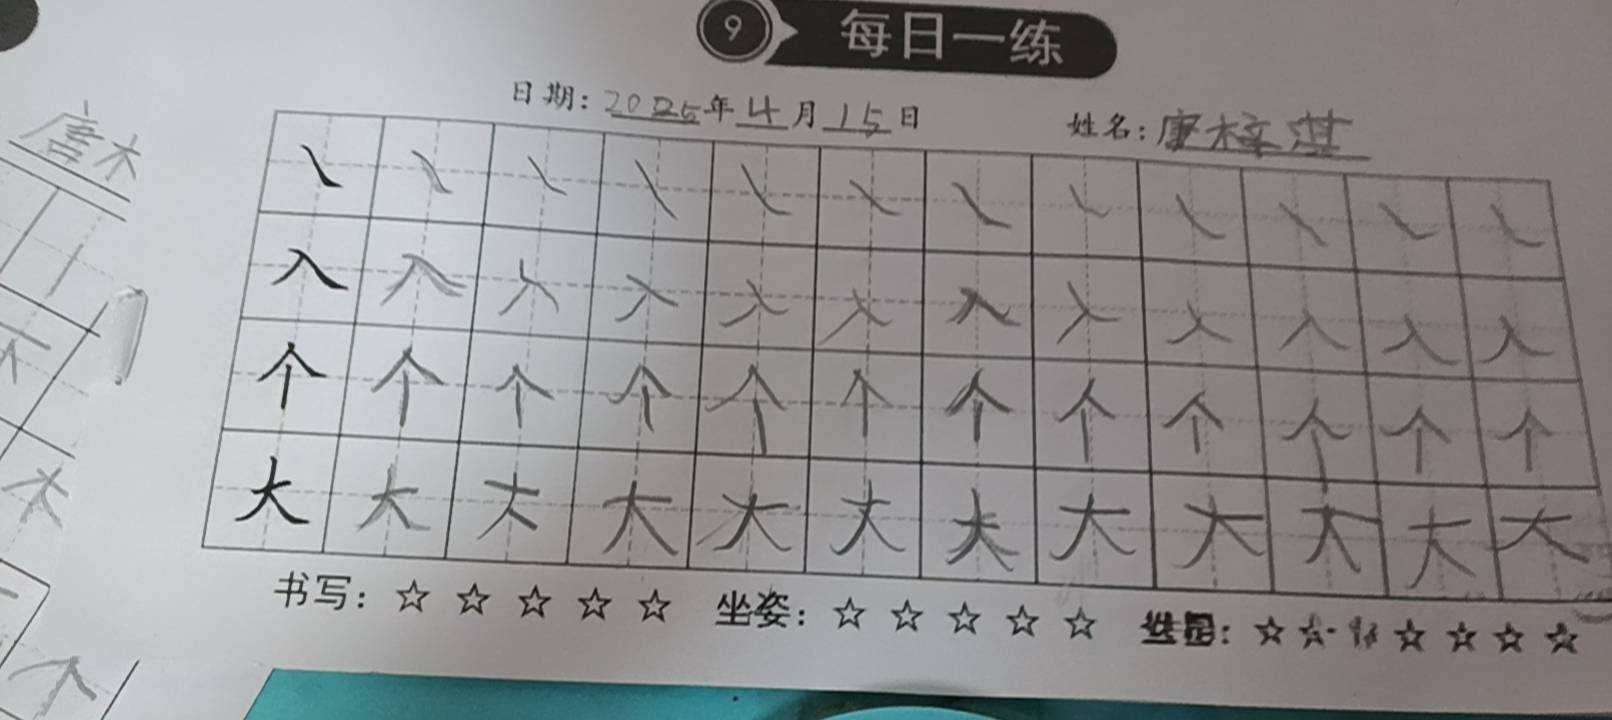 9 每日一练
日期：2025年4月15日 姓名：唐梓淇
㇏ ㇏ ㇏ ㇏ ㇏ ㇏ ㇏ ㇏ ㇏ ㇏ ㇏ ㇏
入 入 入 入 入 入 入 入 入 入 入 入
个 个 个 个 个 个 个 个 个 个 个 个
大 大 大 大 大 大 大 大 大 大 大 大
书写：☆ ☆ ☆ ☆ ☆ 坐姿：☆ ☆ ☆ ☆ ☆